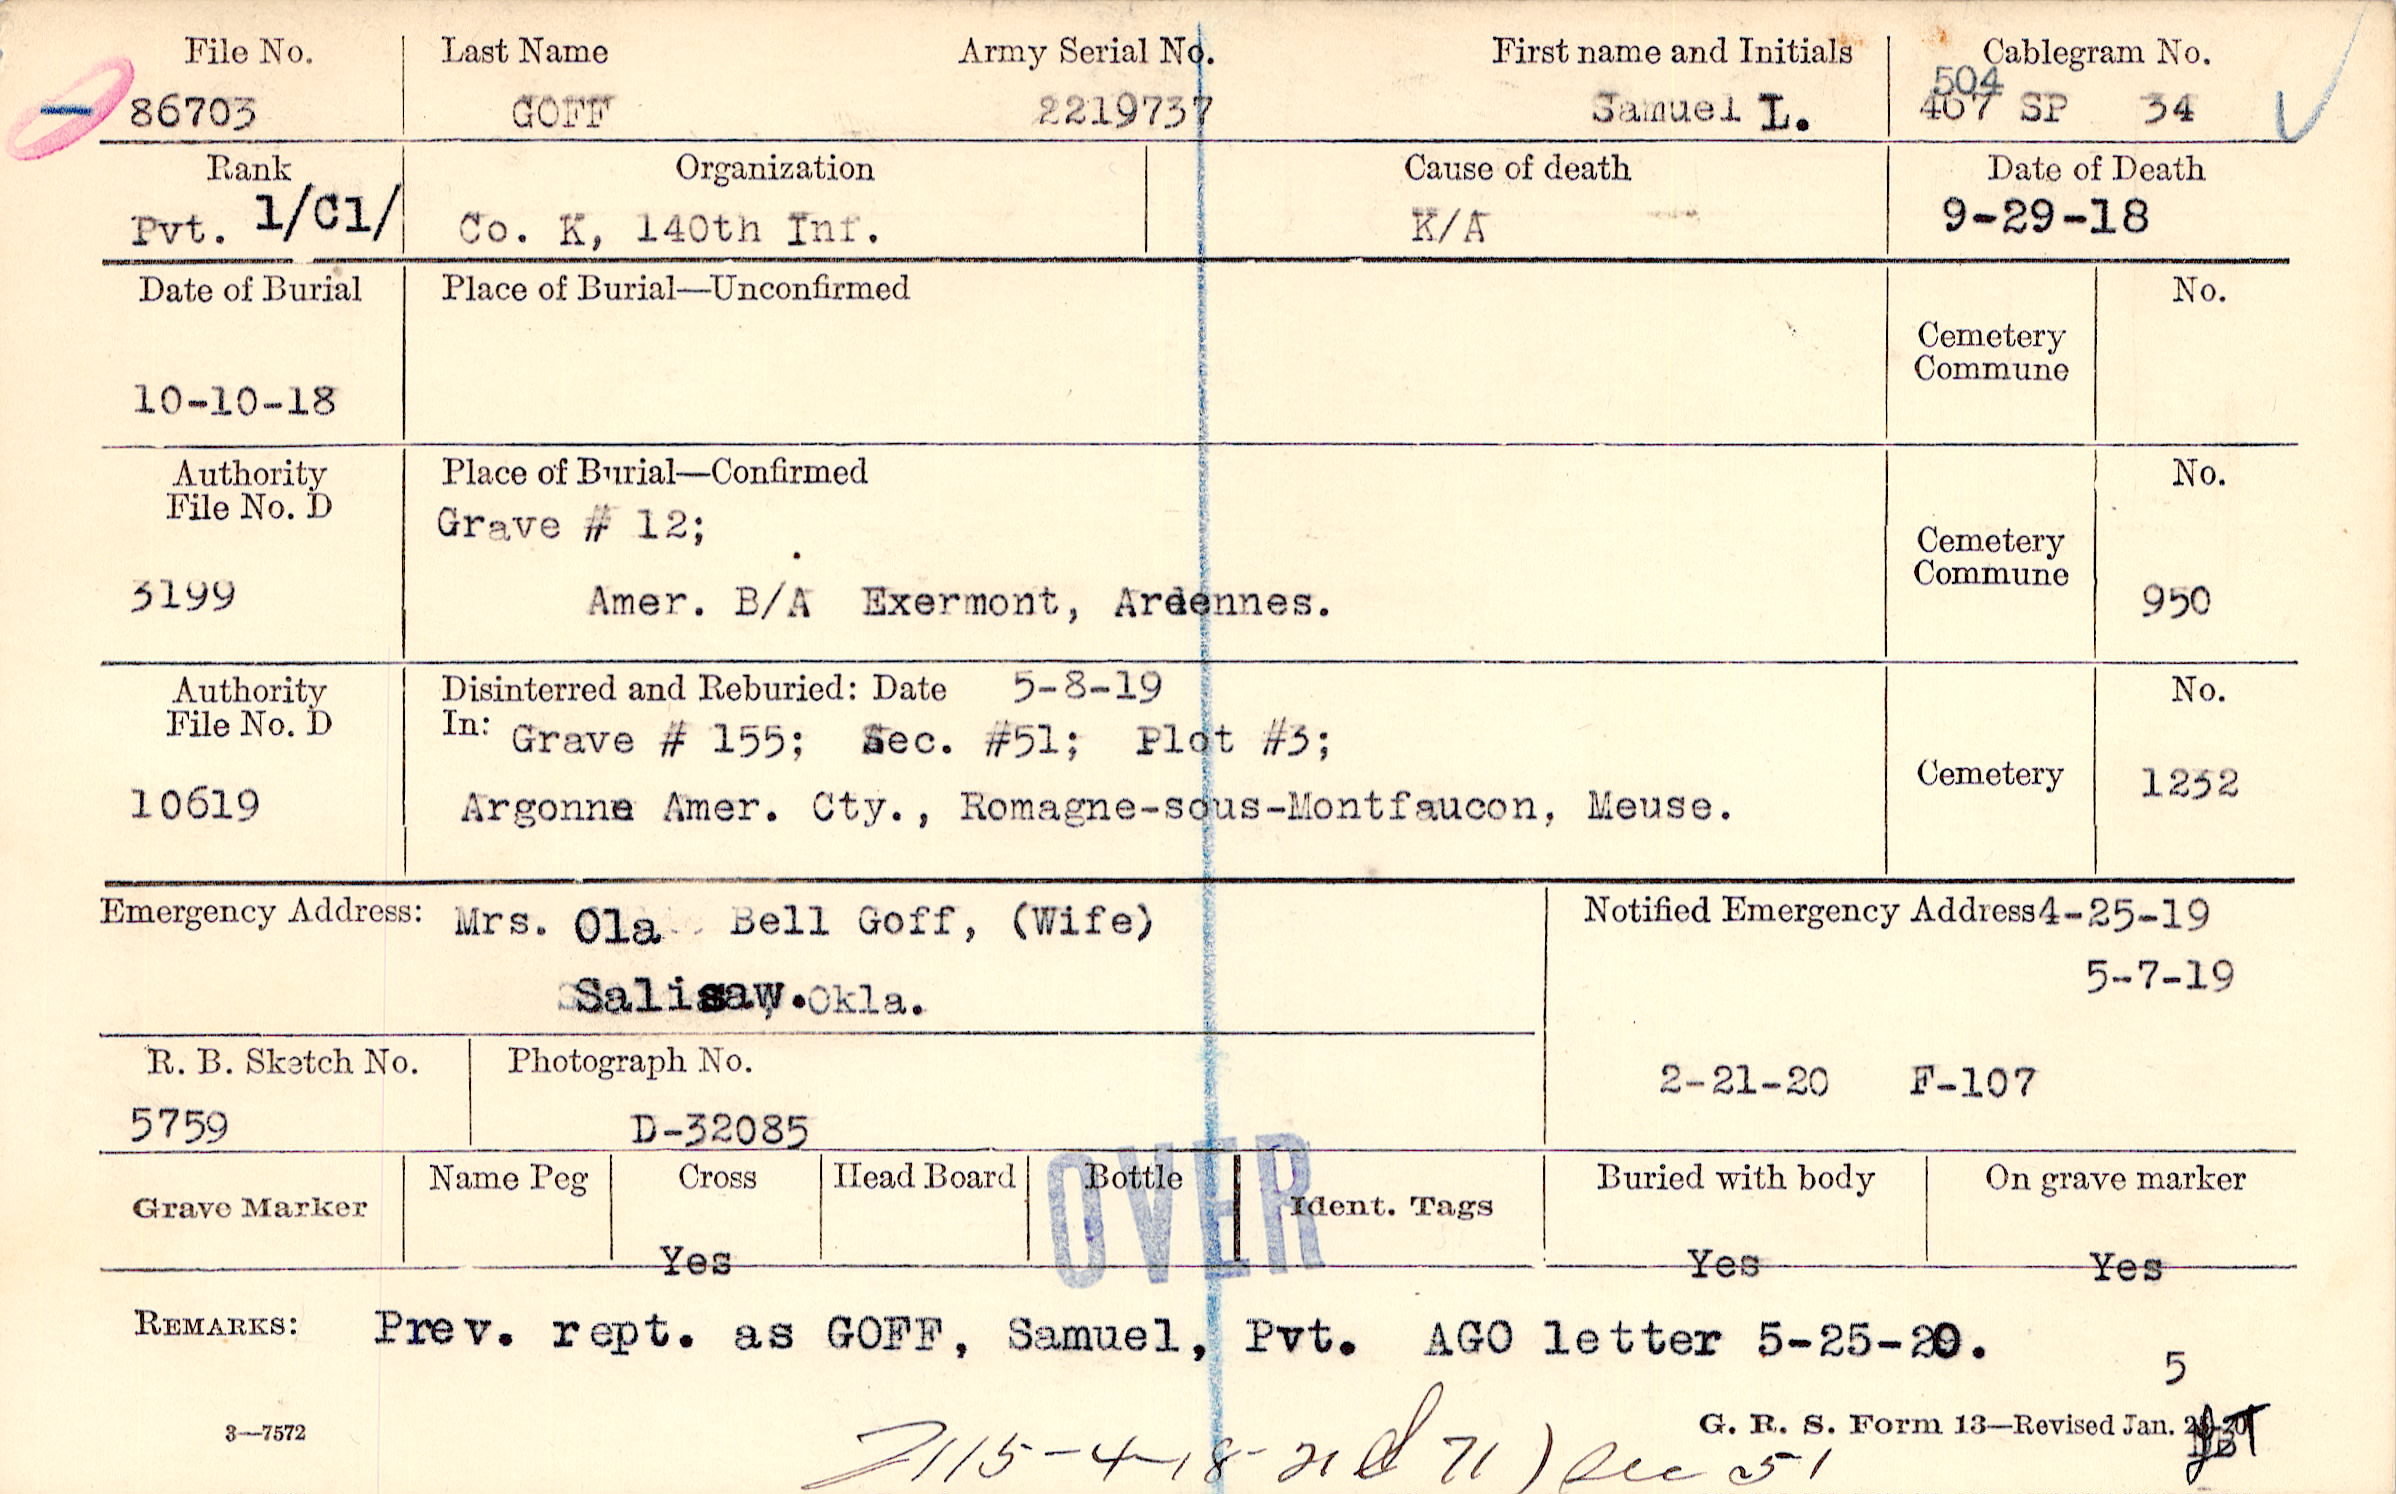 File No. Last Name Army Serial No. First name and Initials Cablegram No.
504
86703 GOFF 2219737 Samuel L. 467 SP 34
Rank Organization Cause of death Date of Death
Pvt. 1/Cl/ Co. K, 140th Inf. K/A 9-29-18
Date of Burial Place of Burial—Unconfirmed No.
Cemetery
Commune
10-10-18
Authority Place of Burial—Confirmed No.
File No. D
Grave # 12;
Cemetery
Commune
3199 Amer. B/A Exermont, Ardennes. 950
Authority Disinterred and Reburied: Date 5-8-19 No.
File No. D In: Grave # 155; Sec. #51; Plot #3;
Cemetery 1232
10619 Argonne Amer. Cty., Romagne-sous-Montfaucon, Meuse.
Emergency Address: Mrs. Ola Bell Goff, (Wife) Notified Emergency Address 4-25-19
5-7-19
Salisaw. Okla.
R. B. Sketch No. Photograph No.
2-21-20 F-107
5759 D-32085
Name Peg Cross Head Board Bottle Buried with body On grave marker
Grave Marker Ident. Tags
OVER
Yes Yes Yes
REMARKS: Prev. rept. as GOFF, Samuel, Pvt. AGO letter 5-25-20.
5
3—7572 G. R. S. Form 13—Revised Jan.
Sec 51